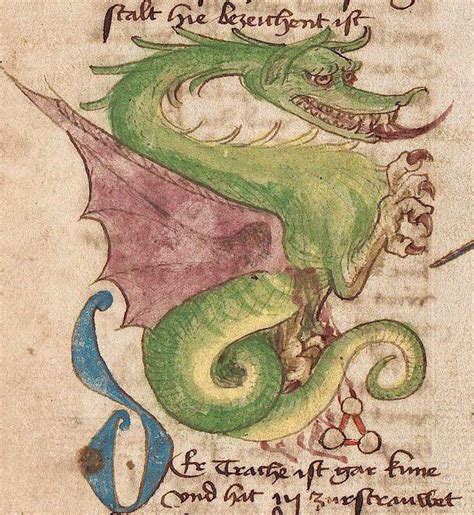 stalt hie bezeichent ist
DEr Trache ist gar kune
vnd hat zurstrauwet